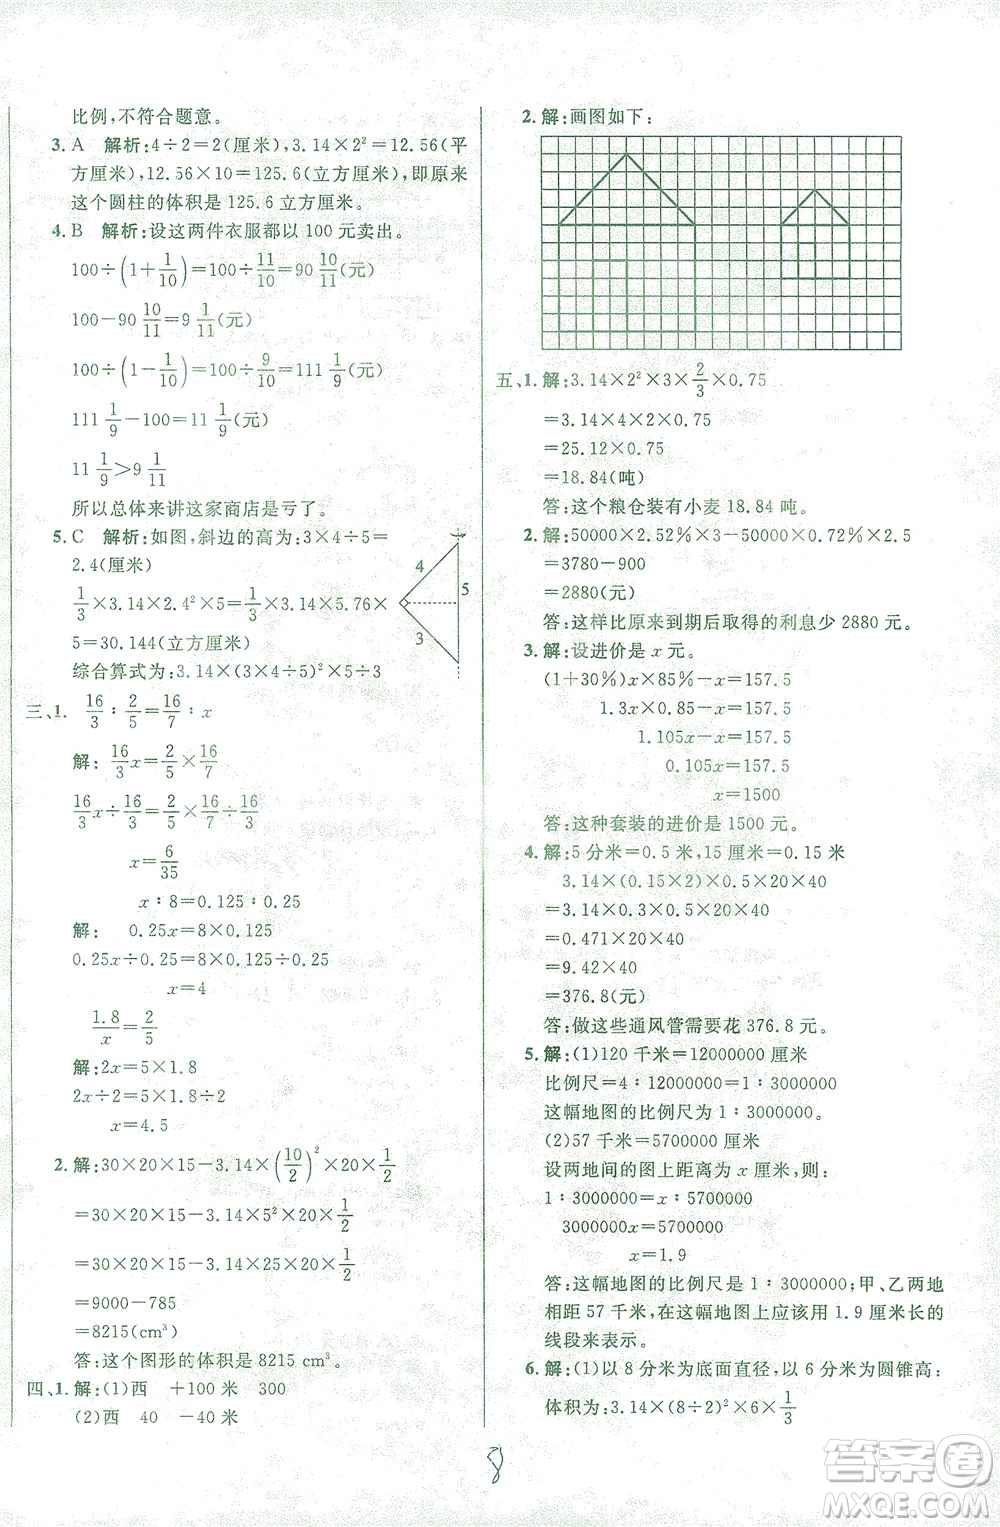 比例,不符合题意。
3. A 解析:4÷2=2(厘米),3.14×2²=12.56(平
方厘米),12.56×10=125.6(立方厘米),即原来
这个圆柱的体积是125.6立方厘米。
4. B 解析:设这两件衣服都以100元卖出。
100÷(1+1/10)=100÷11/10=90 10/11(元)
100-90 10/11=9 1/11(元)
100÷(1-1/10)=100÷9/10=111 1/9(元)
111 1/9-100=11 1/9(元)
11 1/9>9 1/11
所以总体来讲这家商店是亏了。
5. C 解析:如图,斜边的高为:3×4÷5=
2.4(厘米)
1/3×3.14×2.4²×5=1/3×3.14×5.76×
5=30.144(立方厘米)
综合算式为:3.14×(3×4÷5)²×5÷3
4
5
3
三、1. 16/3∶2/5=16/7∶x
解: 16/3x=2/5×16/7
16/3x÷16/3=2/5×16/7÷16/3
x=6/35
x∶8=0.125∶0.25
解: 0.25x=8×0.125
0.25x÷0.25=8×0.125÷0.25
x=4
1.8/x=2/5
解:2x=5×1.8
2x÷2=5×1.8÷2
x=4.5
2. 解:30×20×15-3.14×(10/2)²×20×1/2
=30×20×15-3.14×5²×20×1/2
=9000-785
=8215(cm³)
答:这个图形的体积是8215 cm³。
四、1. 解:(1)西 +100米 300
(2)西 40 -40米
2. 解:画图如下:
五、1. 解:3.14×2²×3×2/3×0.75
=3.14×4×2×0.75
=25.12×0.75
=18.84(吨)
答:这个粮仓装有小麦18.84吨。
2. 解:50000×2.52%×3-50000×0.72%×2.5
=3780-900
=2880(元)
答:这样比原来到期后取得的利息少2880元。
3. 解:设进价是x元。
(1+30%)x×85%-x=157.5
1.3x×0.85-x=157.5
1.105x-x=157.5
0.105x=157.5
x=1500
答:这种套装的进价是1500元。
4. 解:5分米=0.5米,15厘米=0.15米
3.14×(0.15×2)×0.5×20×40
=3.14×0.3×0.5×20×40
=0.471×20×40
=9.42×40
=376.8(元)
答:做这些通风管需要花376.8元。
5. 解:(1)120千米=12000000厘米
比例尺=4∶12000000=1∶3000000
这幅地图的比例尺为1∶3000000。
(2)57千米=5700000厘米
设两地间的图上距离为x厘米,则:
1∶3000000=x∶5700000
3000000x=5700000
x=1.9
答:这幅地图的比例尺是1∶3000000;甲、乙两地
相距57千米,在这幅地图上应该用1.9厘米长的
线段来表示。
6. 解:(1)以8分米为底面直径,以6分米为圆锥高:
体积为:3.14×(8÷2)²×6×1/3
8
答案圈
MXQE.COM